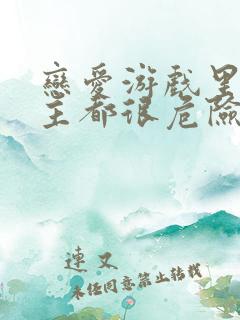 戀愛游戲里
主都很危險
連又
未經同意禁止轉載